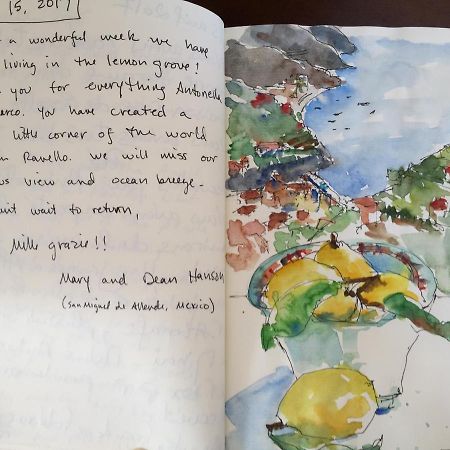 15, 2017
a wonderful week we have
living in the lemon grove!
you for everything Antonella
. You have created a
little corner of the world
Ravello. We will miss our
view and ocean breeze -
wait to return,
Mille grazie!!
Mary and Dean Hansen
(San Miguel de Allende, Mexico)